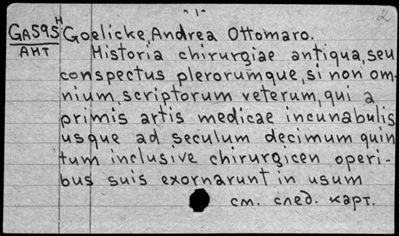 - 1 -
2
GA595 H Goelicke, Andrea Ottomaro.
АНТ Historia chirurgiae antiqua, seu
conspectus plerorumque, si non om-
nium, scriptorum veterum, qui a
primis artis medicae incunabulis
usque ad seculum decimum quin
tum inclusive chirurgicen operi-
bus suis exornarunt in usum
см. след. карт.